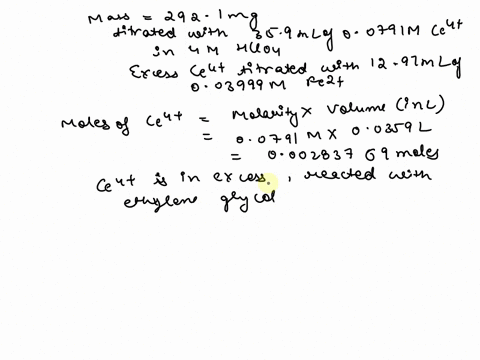 Mass = 292.1mg
titrated with 35.9mL of 0.0791M Ce4+
in 4M HClO4
Excess Ce4+ titrated with 12.97mL of
0.03999M Fe2+
Moles of Ce4+ = Molarity X Volume (in L)
= 0.0791 M X 0.0359 L
= 0.00283769 moles
Ce4+ is in excess, reacted with
ethylene glycol